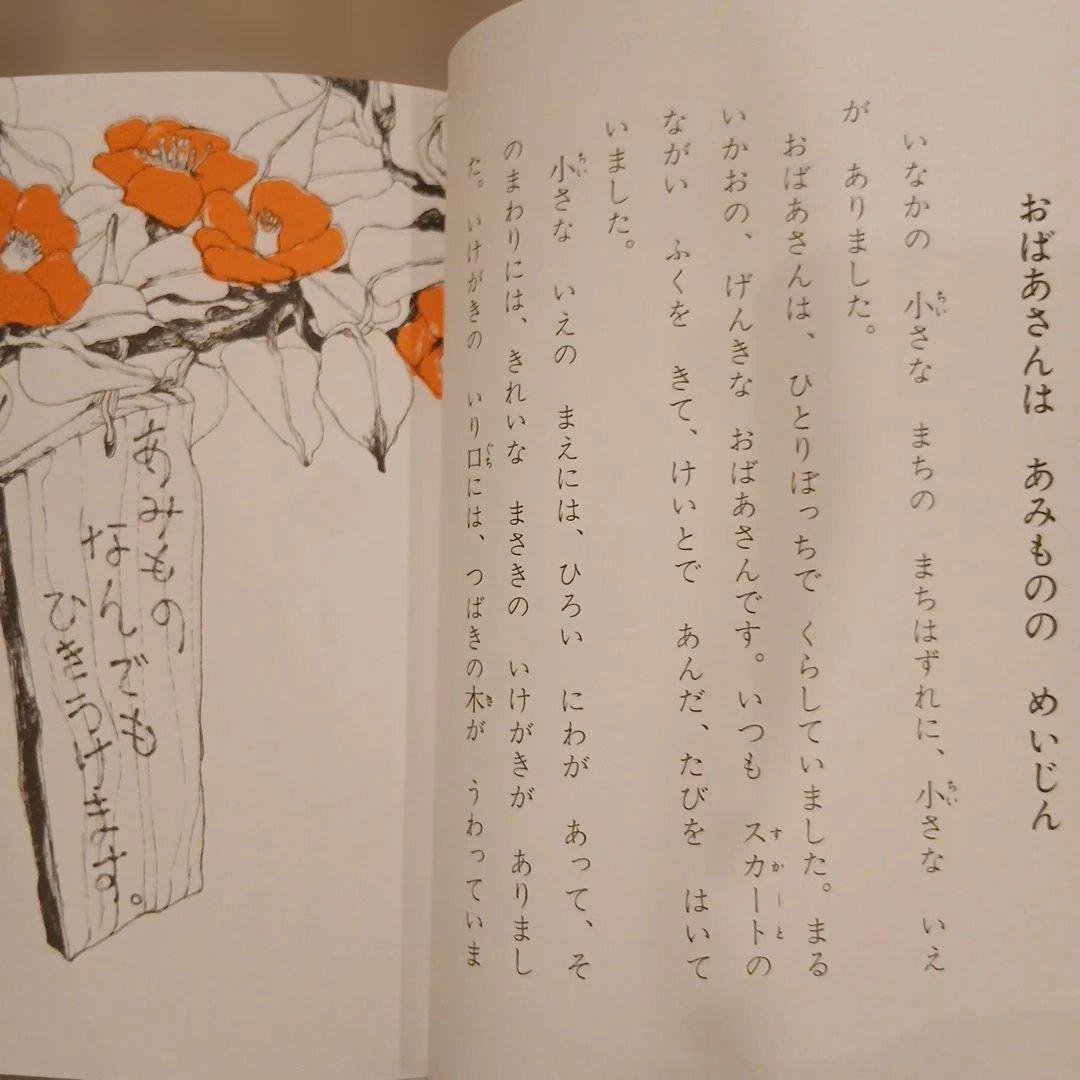 おばあさんは　あみものの　めいじん
いなかの　小さな　まちの　まちはずれに、小さな　いえ
が　ありました。
おばあさんは、ひとりぼっちで　くらしていました。まる
いかおの、げんきな　おばあさんです。いつも　スカートの
ながい　ふくを　きて、けいとで　あんだ、たびを　はいて
いました。
小さな　いえの　まえには、ひろい　にわが　あって、そ
のまわりには、きれいな　まさきの　いけがきが　ありまし
た。いけがきの　いり口には、つばきの木が　うわっていま
あみもの
なんでも
ひきうけます。